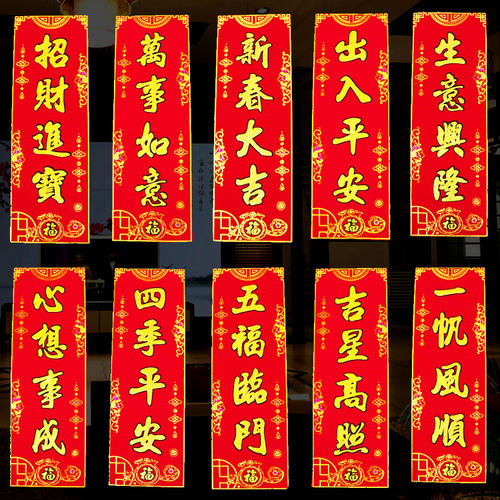 招財進寶
萬事如意
新春大吉
出入平安
生意興隆
福
福
福
福
福
心想事成
四季平安
五福臨門
吉星高照
一帆風順
福
福
福
福
福